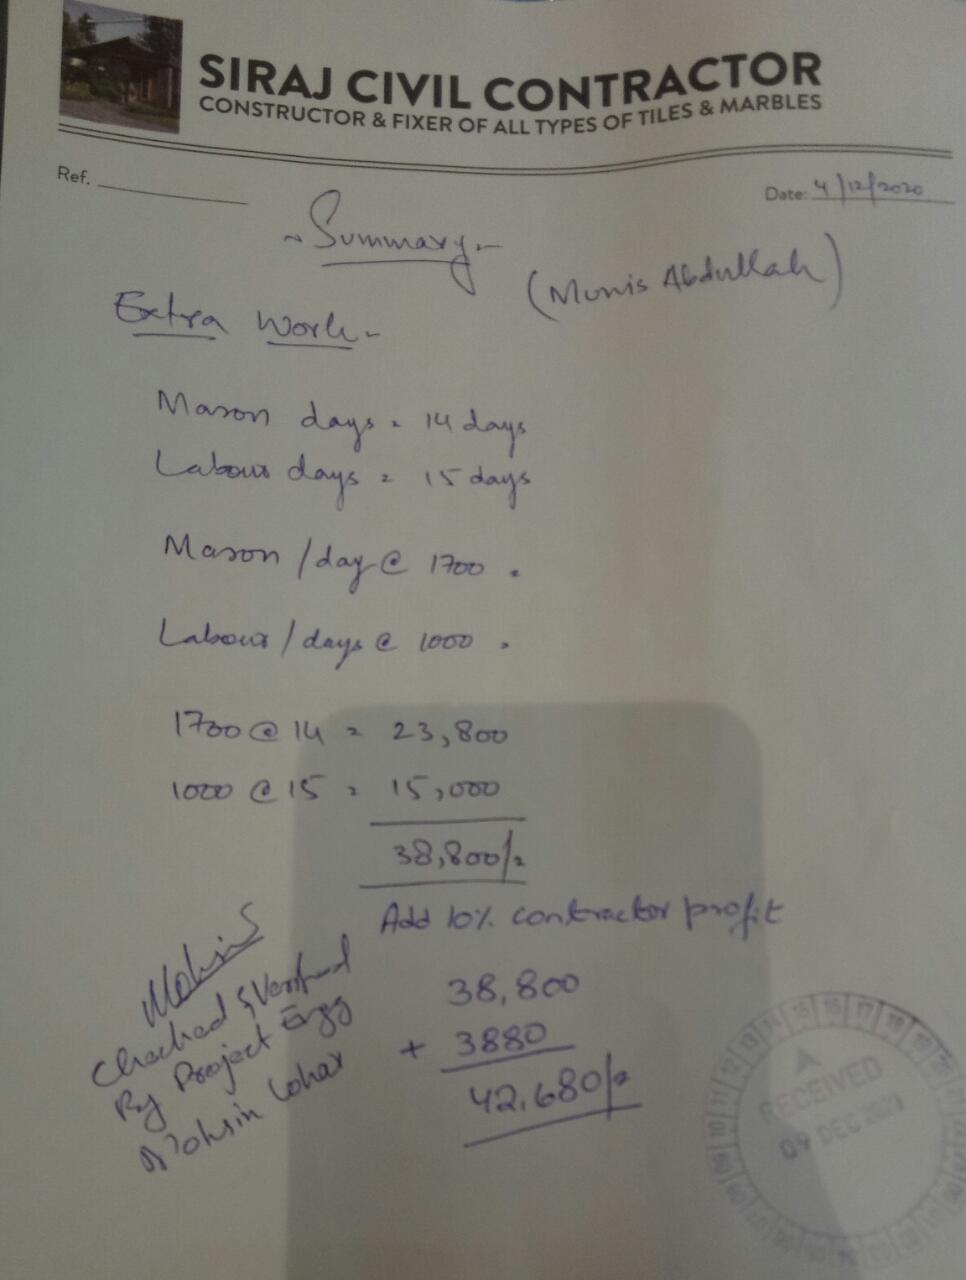 SIRAJ CIVIL CONTRACTOR
CONSTRUCTOR & FIXER OF ALL TYPES OF TILES & MARBLES
Ref.
Date: 4/12/2020
~ Summary ~
(Munis Abdullah)
Extra Work -
Mason days = 14 days
Labour days = 15 days
Mason /day @ 1700 .
Labour / days @ 1000 .
1700 @ 14 = 23,800
1000 @ 15 = 15,000
38,800/=
Add 10% contractor profit
38,800
+ 3880
42,680/=
Mohsin
Checked & Verified
By Project Engg
Mohsin
RECEIVED
09 DEC 2020